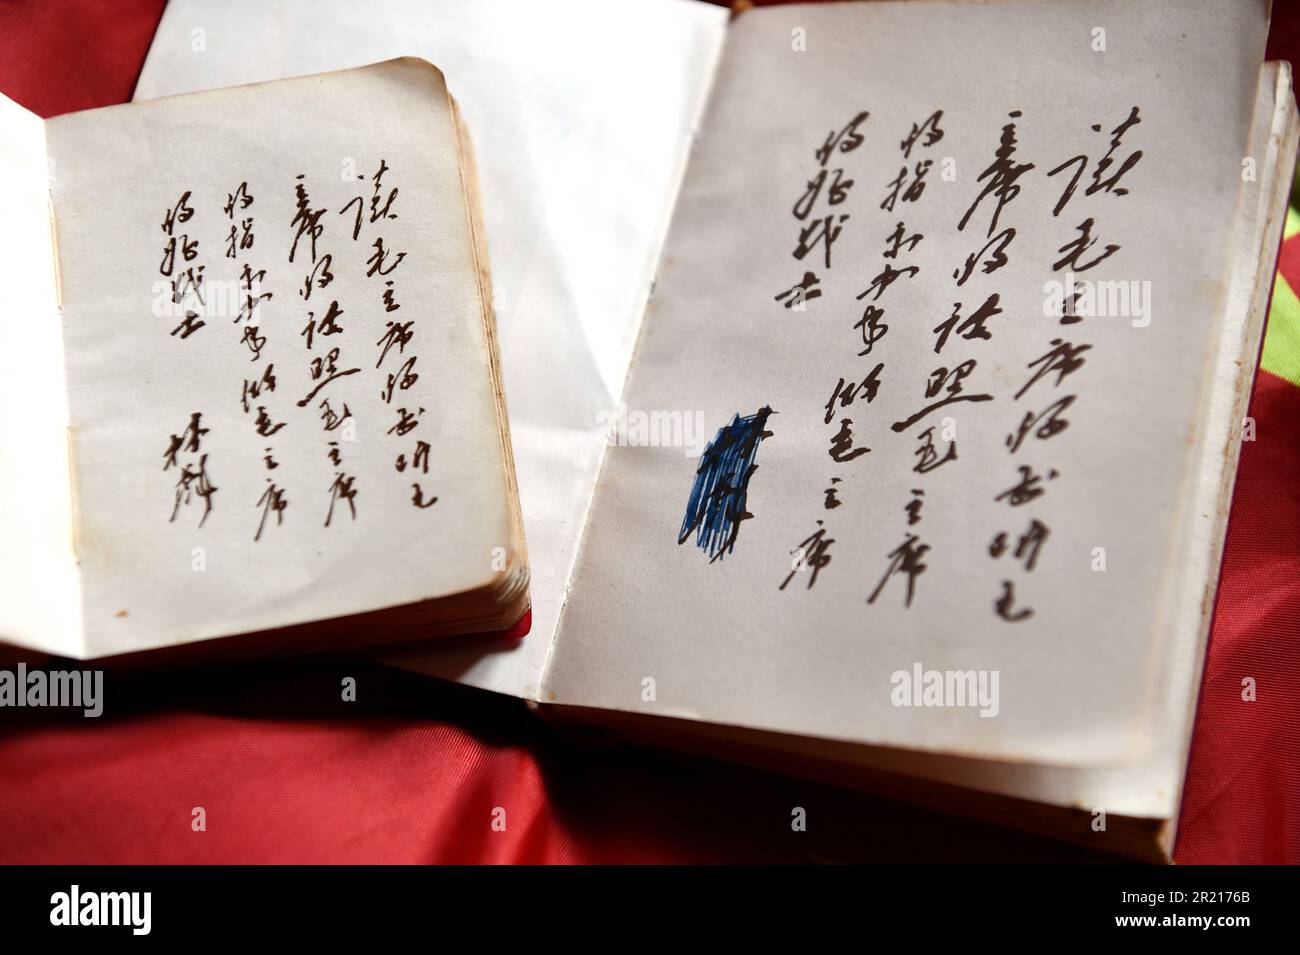 读毛主席的书听毛
主席的话照毛主席
的指示办事做毛主席
的好战士
林彪
读毛主席的书听毛
主席的话照毛主席
的指示办事做毛主席
的好战士
alamy
alamy
alamy
alamy
alamy
Image ID: 2R2176B
www.alamy.com